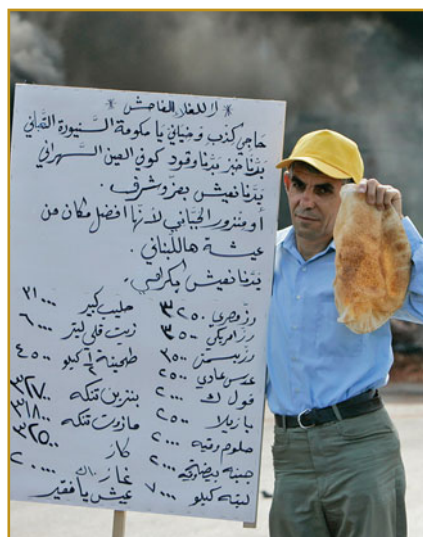 * لا للغلاء الفاحش *
حاجي كذب وخباني يا حكومة السنيورة التعباني
بدّنا خبز بدّنا وقود كوني العين السهراني
بدّنا نعيش بعزّ وشرف.
أو منزور الجباني لأنها افضل مكان من
عيشة هاللبناني.
بدّنا نعيش بكرامي.
رز مصري ٣٢٥٠
رز امريكي ٣٥٠٠
رز بسمتي ٣٥٠٠
عدس عادي ٢٥٠٠
فول ك ٢٠٠٠
بازيلا ٢٥٠٠
حلوم رقيه ٢٠٠٠
جبنه بيضا ٢٠٠٠
لبنه كيلو ٧٠٠٠
حليب كبير ٣١٠٠٠
زيت قلي ليتر ٦٠٠٠
طحينة كيلو ٤٥٠٠
بنزين تنكه ٣٢٧٠٠
مازوت تنكه ٣١٨٠٠
كاز ٣٢٥٠٠
غاز ٢٠٠٠٠
عيش يا فقير